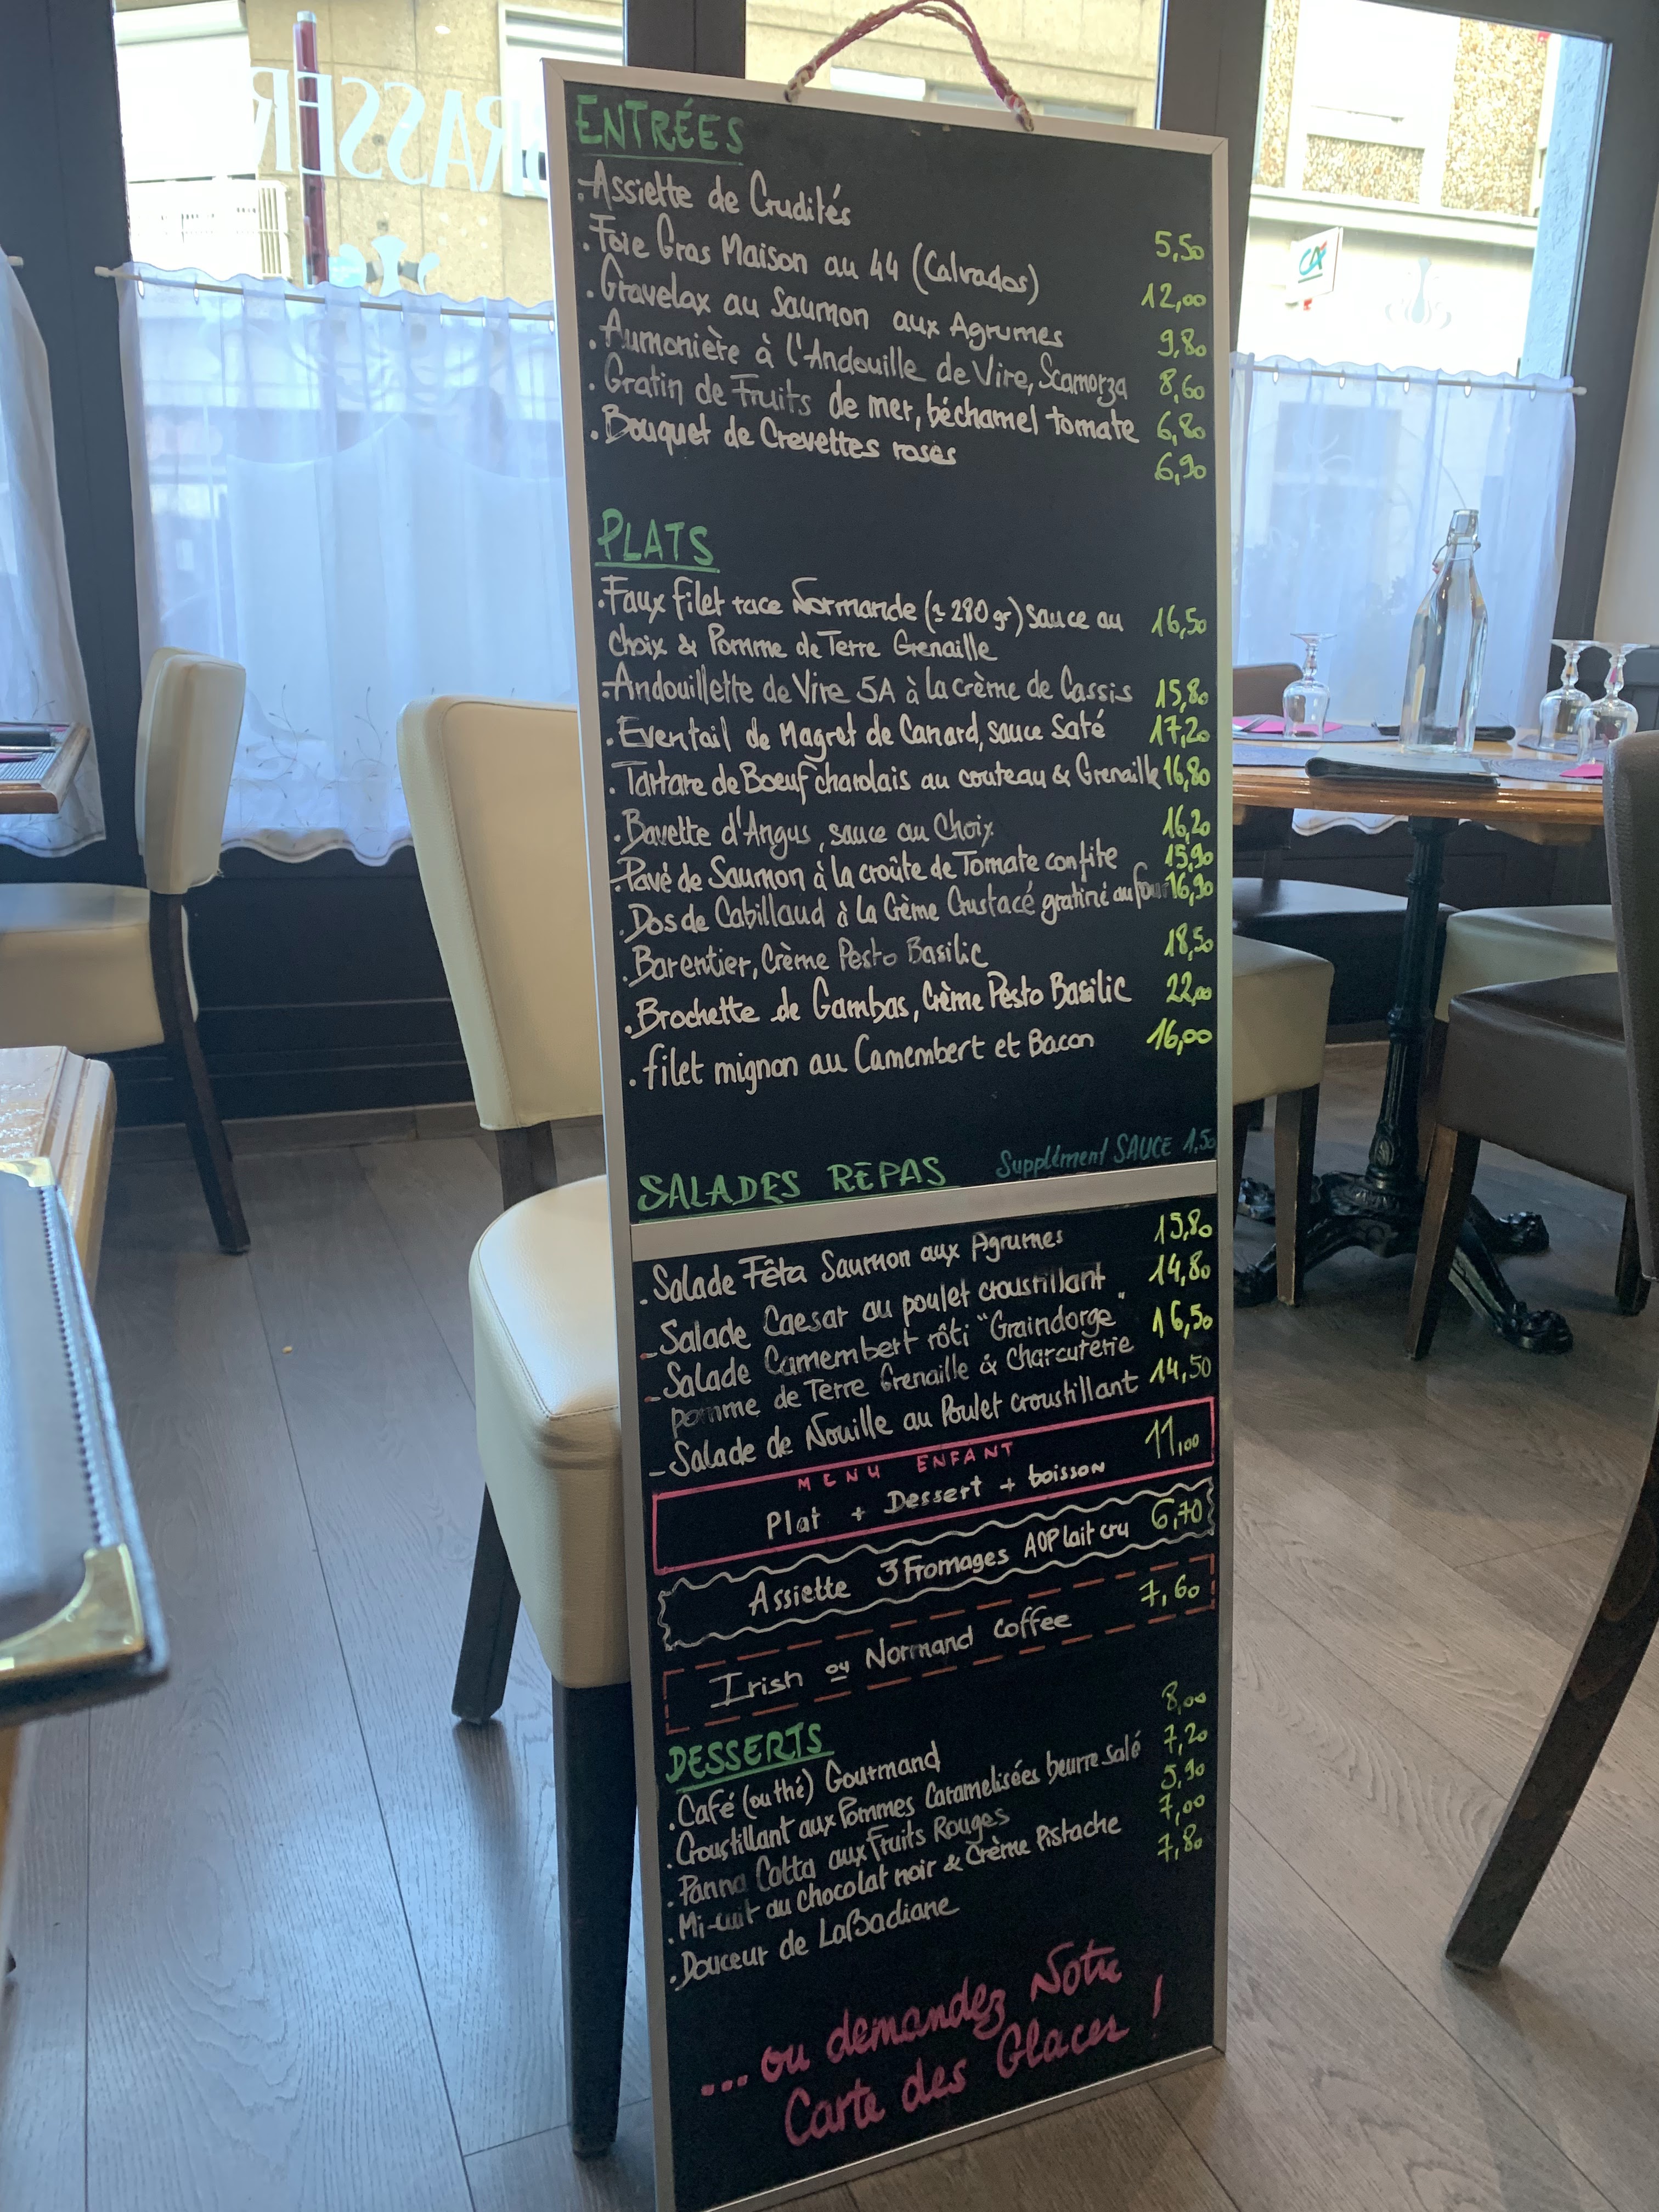 BRASSER
CA
ENTRÉES
.Assiette de Crudités 5,50
.Foie Gras Maison au 44 (Calvados) 12,00
.Gravelax au Saumon aux Agrumes 9,80
.Aumonière à l'Andouille de Vire, Scamorza 8,60
.Gratin de Fruits de mer, béchamel tomate 6,80
.Bouquet de Crevettes roses 6,90
PLATS
.Faux filet race Normande (≃ 280 gr) sauce au 16,50
choix & Pomme de Terre Grenaille
.Andouillette de Vire 5A à la crème de Cassis 15,80
.Eventail de Magret de Canard, sauce Saté 17,20
.Tartare de Boeuf charolais au couteau & Grenaille 16,80
.Bavette d'Angus, sauce au Choix 16,20
.Pavé de Saumon à la croûte de Tomate confite 15,90
.Dos de Cabillaud à la Crème Crustacé gratiné au four 16,90
.Barentier, Crème Pesto Basilic 18,50
.Brochette de Gambas, Crème Pesto Basilic 22,00
.filet mignon au Camembert et Bacon 16,00
Supplément SAUCE 1,50
SALADES REPAS
.Salade Fêta Saumon aux Agrumes 15,80
_Salade Caesar au poulet croustillant 14,80
_Salade Camembert rôti "Graindorge" 16,50
pomme de Terre Grenaille & Charcuterie
_Salade de Nouille au Poulet croustillant 14,50
MENU ENFANT
Plat + Dessert + boisson 11,00
Assiette 3 Fromages AOP lait cru 6,70
Irish ou Normand Coffee 7,60
DESSERTS
.Café (ou thé) Gourmand 8,00
.Croustillant aux Pommes Caramelisées beurre salé 7,20
.Panna Cotta aux Fruits Rouges 5,90
.Mi-cuit au chocolat noir & Crème Pistache 7,00
.Douceur de LaBadiane 7,80
... ou demandez Notre
Carte des Glaces !